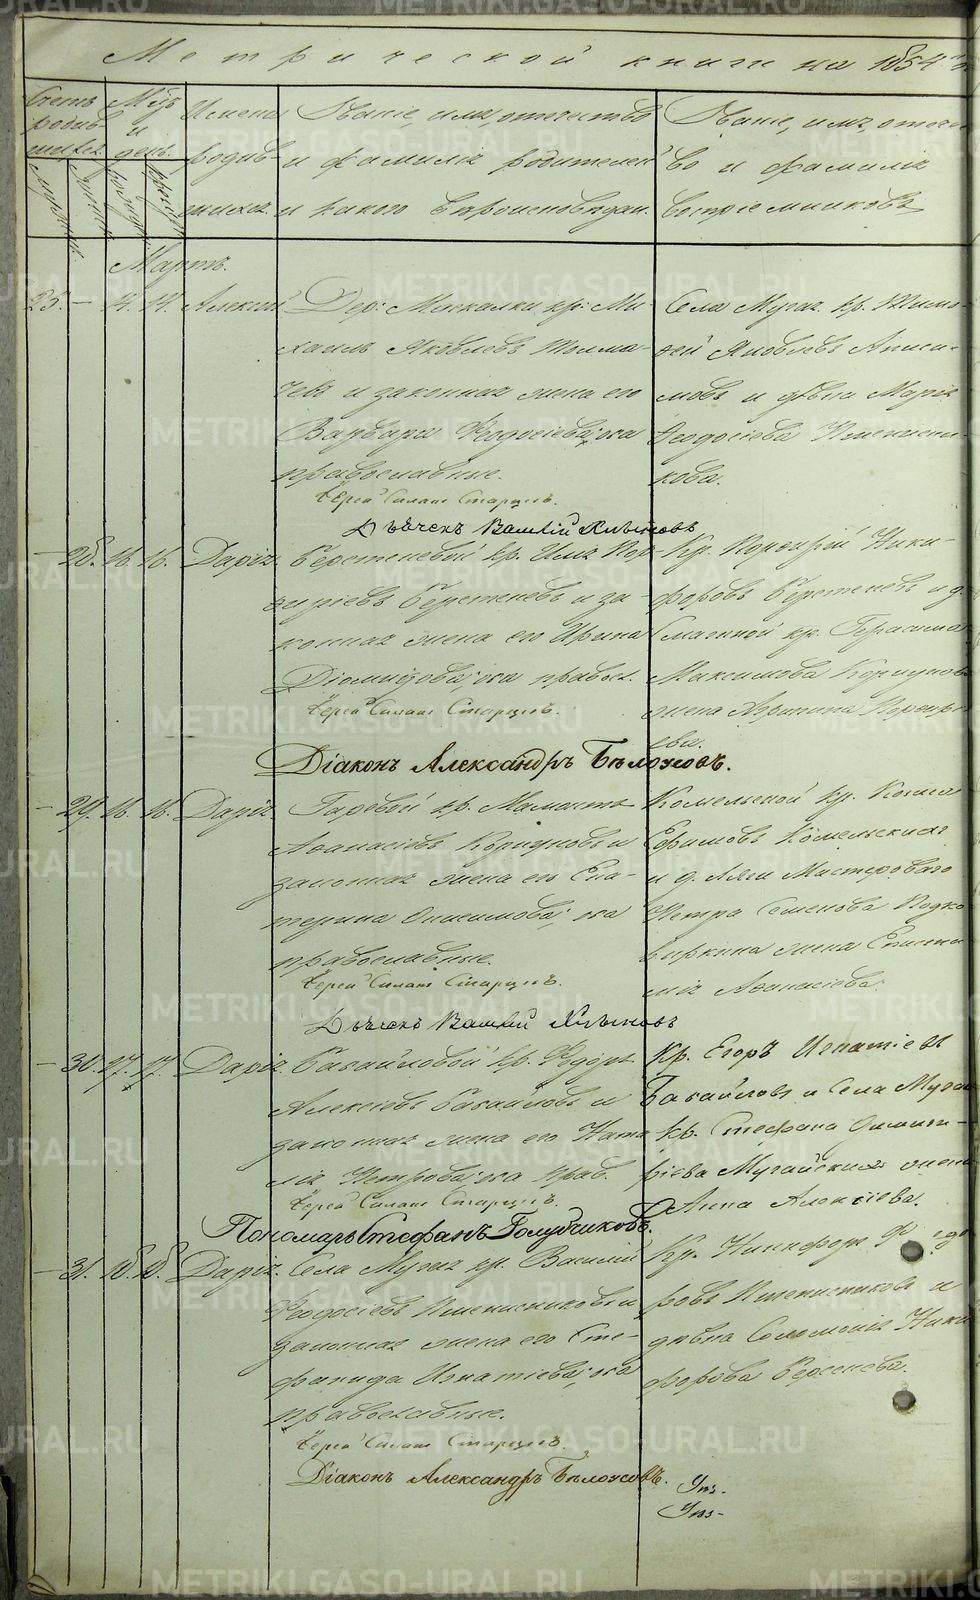 Метрической книги на 1854 г
Счетъ родив-шихся.
Мужеска. Женска.
Мѣс. и день.
рожден. крещен.
Имена родив-шихся
Званіе, имя, отчество
и фамилія родителей
и какого вѣроисповѣдан.
Званіе, имя, отечест-
во и фамилія
воспріемниковъ
Мартъ.
25. — 14. 14. Алексій
Дер: Менкалки кр: Ми-
хаилъ Яковлевъ Толма-
чевъ и законная жена его
Варвара Ѳеодосіева; оба
православные.
Села Мугая кр. Тимо-
ѳей Яковлевъ Аниси-
мовъ и дѣвка Марія
Ѳеодосіева Пшенични-
кова.
Іерей Силаш Старцевъ.
Дьячекъ Василій Хлыновъ
— 28. 16. 16. Дарія.
Берстеневой кр. Илья Пор-
фиріевъ Берстеневъ и за-
конная жена его Ирина
Діомидова; оба правосл.
Кр. Порфирій Ники-
форовъ Берстеневъ и д.
кр. Герасима
Максимова Коршунова
жена Агрипина Порфирі-
ева.
Іерей Силаш Старцевъ.
Діаконъ Александръ Бѣлоусовъ.
— 29. 16. 16. Дарія
Гаревой кр. Мамантъ
Аѳанасіевъ Коршуновъ и
законная жена его Ека-
терина Онисимова; оба
православные.
Комельской кр. Козма
Ефимовъ Комельскихъ
и д. Ляги Мастероваго
Петра Семенова Подко-
виркина жена Еписти-
мія Аѳанасіева.
Іерей Силаш Старцевъ.
Дьячекъ Василій Хлыновъ
— 30. 17. 17. Дарія.
Бакайловой кр. Ѳедоръ
Алексіевъ Бакайловъ и
законная жена его Ната-
лія Петрова; оба прав.
Кр. Егоръ Игнатіевъ
Бакайловъ и Села Мугая
кр. Стефана Димит-
ріева Мугайскихъ жена
Анна Алексіева.
Іерей Силаш Старцевъ.
Пономарь Стефанъ Голубчиковъ.
— 31. 18. 18. Дарія.
Села Мугая кр. Василій
Ѳеодосіевъ Пшенисниковъ и
законная жена его Сте-
фанида Игнатіева; оба
православные.
Кр. Никифоръ Ѳедо-
ровъ Пшенисниковъ и
дѣвка Соломонія Ники-
форова Берсенева.
Іерей Силаш Старцевъ.
Діаконъ Александръ Бѣлоусовъ.
METRIKI.GASO-URAL.RU